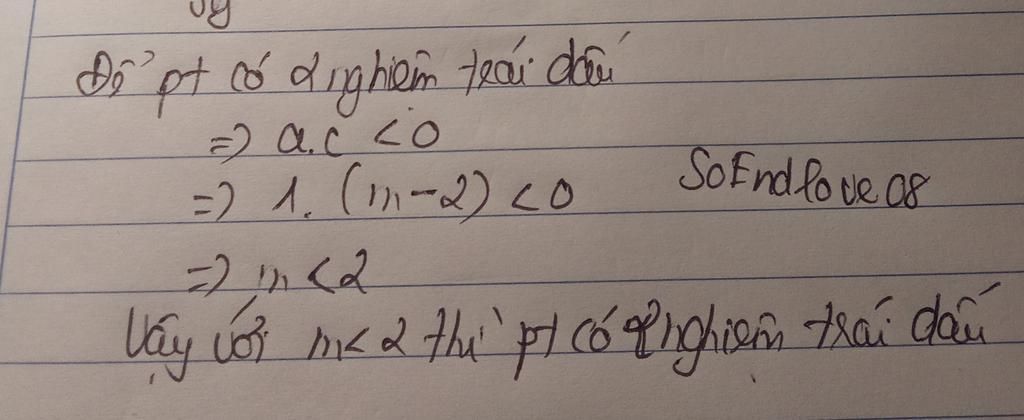 Để pt có 2 nghiệm trái dấu
=> a.c < 0
=> 1. (m-2) < 0 SoEndlove08
=> m < 2
Vậy với m < 2 thì pt có 2 nghiệm trái dấu